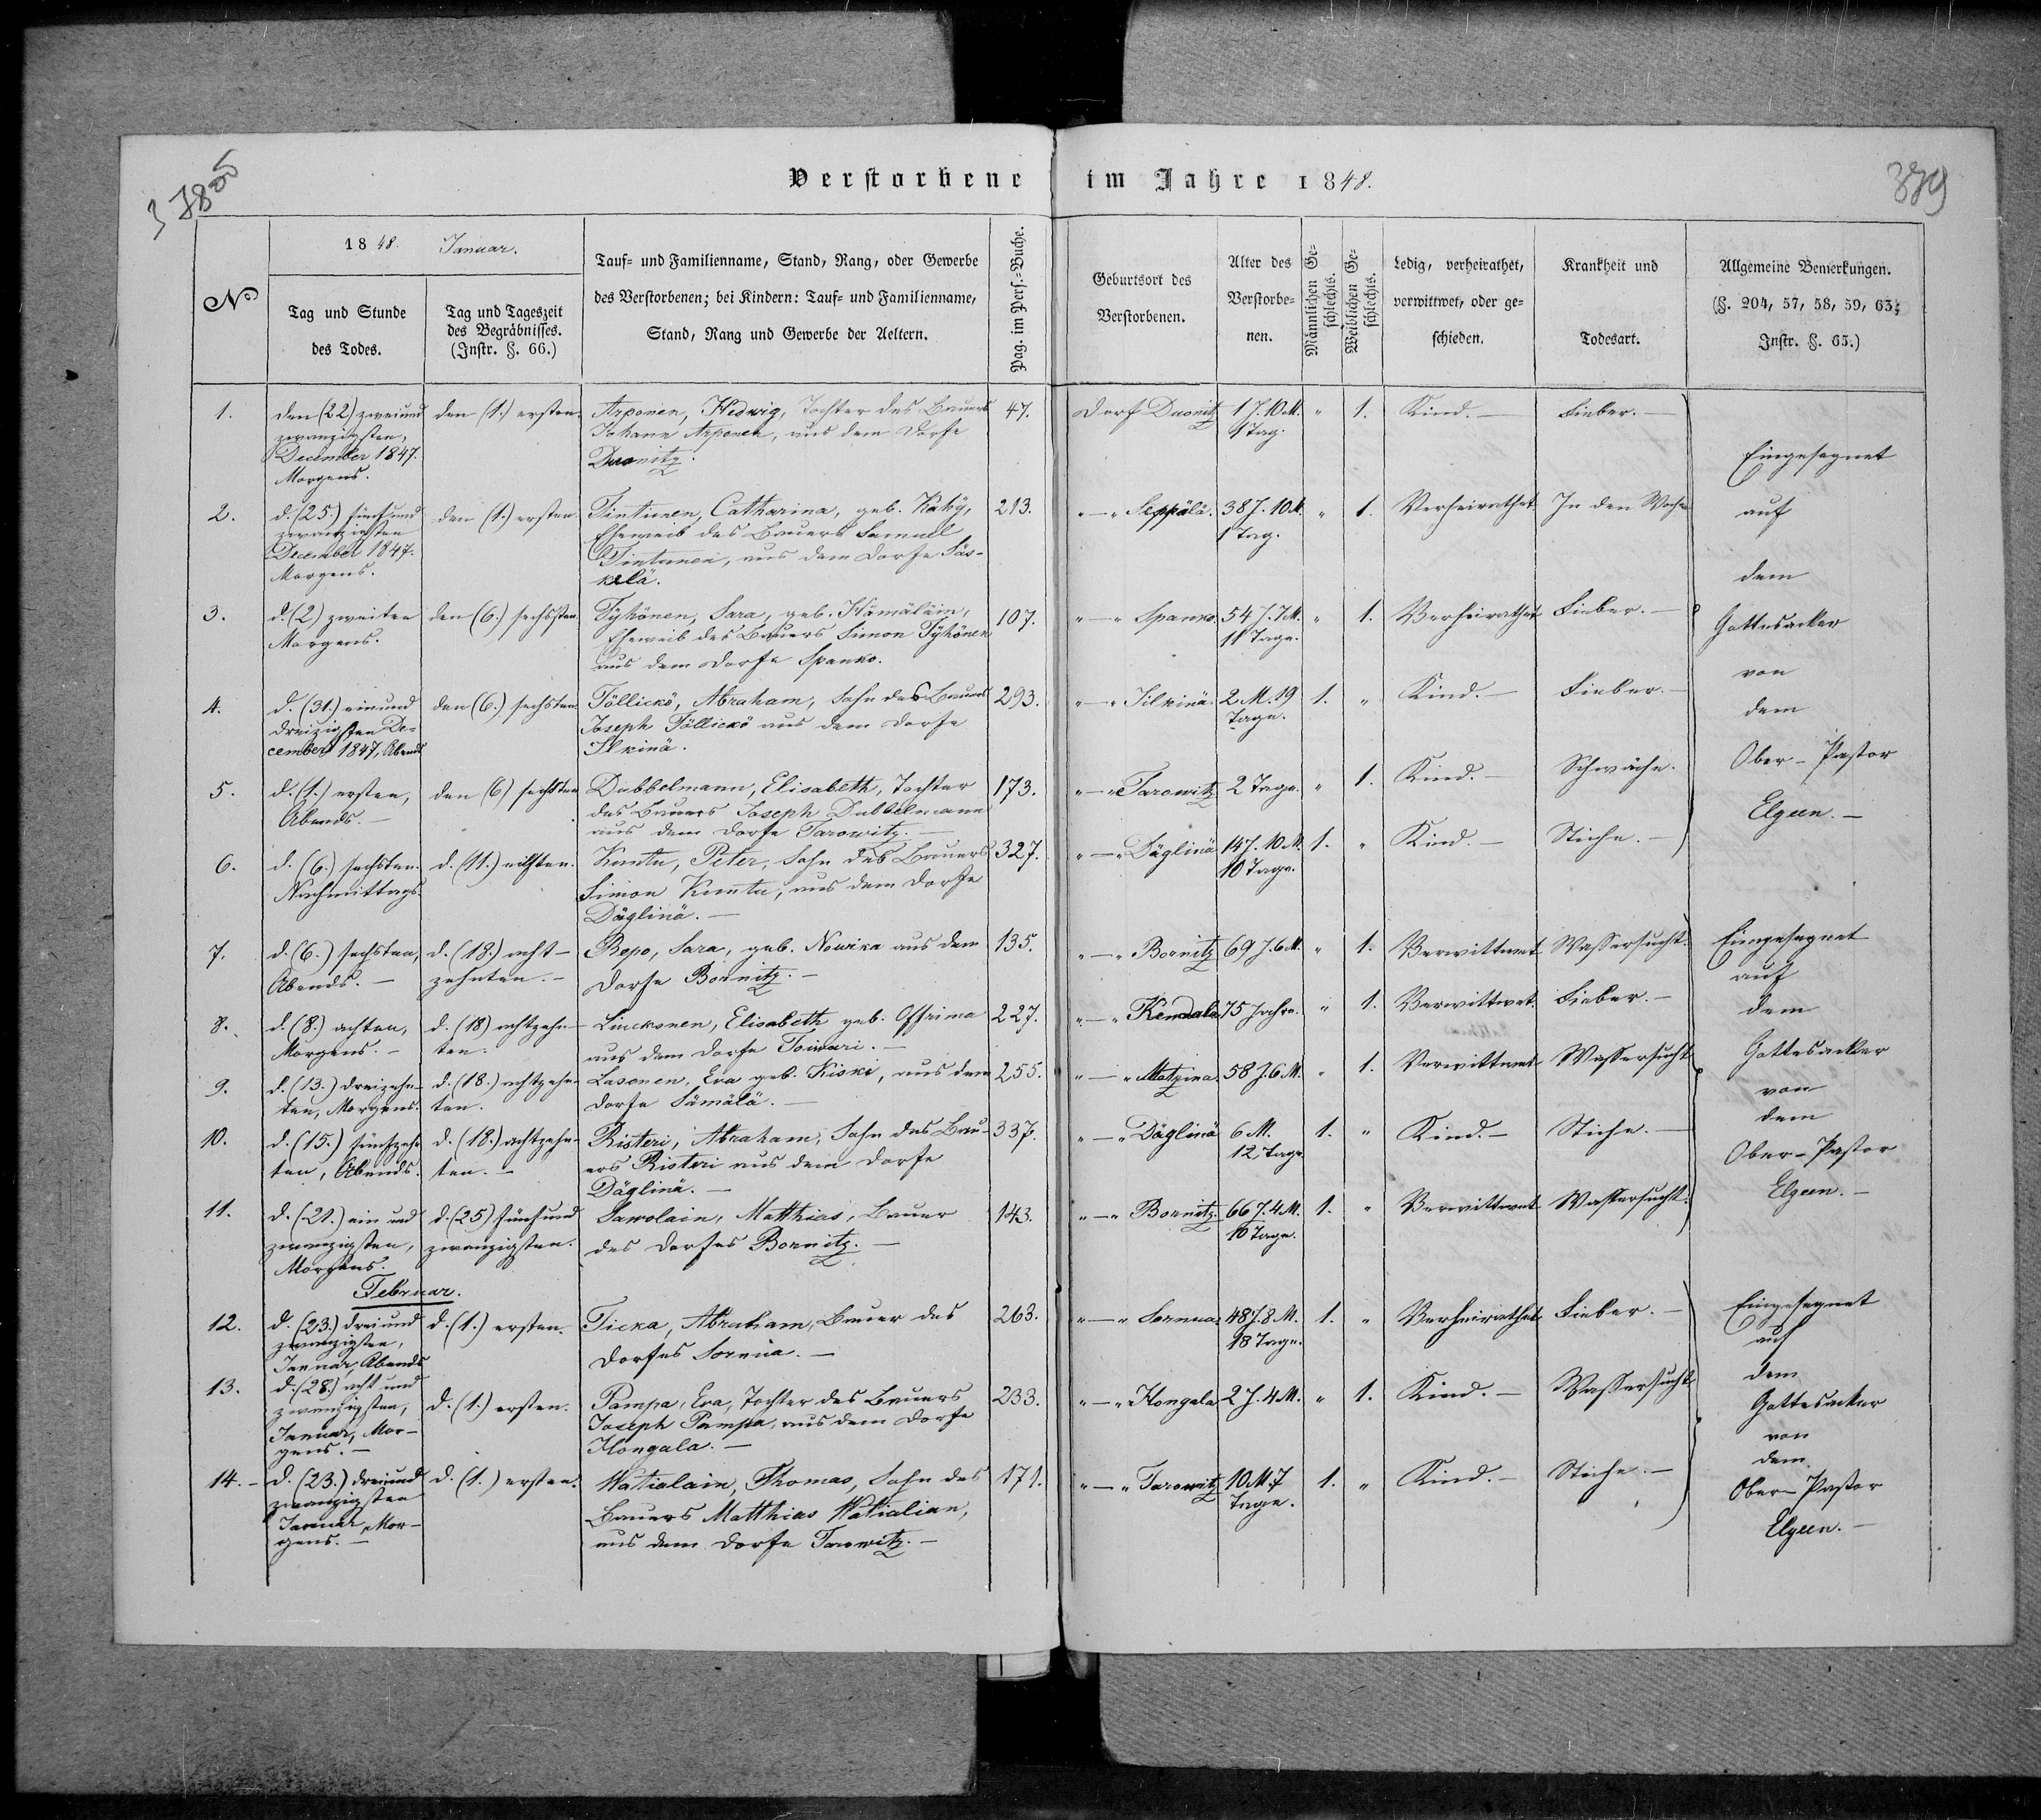 Verstorbene im Jahre 1848.
379
1848. Januar.
No
Tag und Stunde
des Todes.
Tag und Tageszeit
des Begräbnisses.
(Instr. §. 66.)
Tauf- und Familienname, Stand, Rang, oder Gewerbe
des Verstorbenen; bei Kindern: Tauf- und Familienname,
Stand, Rang und Gewerbe der Aeltern.
Pag. im Pers.-Buche.
Geburtsort des
Verstorbenen.
Alter des
Verstorbe-
nen.
Männlichen Ge-
schlechts.
Weiblichen Ge-
schlechts.
Ledig, verheirathet,
verwittwet, oder ge-
schieden.
Krankheit und
Todesart.
Allgemeine Bemerkungen.
(§. 204, 57, 58, 59, 63;
Instr. §. 65.)
1.
den (22) zweiund
zwanzigsten,
December 1847.
Morgens.
den (1.) ersten.
Arponen, Hedwig, Tochter des Bauers
Johann Arponen, aus dem Dorfe
Duonitz.
47.
Dorf Duonitz
1 J. 10 M.
1 Tag.
" 1. Kind. — Fieber. —
2.
d. (25.) fünf und
zwanzigsten
December 1847.
Morgens.
den (1.) ersten
Tintunen, Catharina, geb. Kähy,
Eheweib des Bauers Samuel
Tintunen, aus dem Dorfe Säs-
kelä.
213.
" — " Seppälä.
38 J. 10 M.
1 Tag.
" 1. Verheirathet In den Wochen
3.
d. (2) zweiten
Morgens.
den (6.) sechsten
Tyhönen, Sara, geb. Hämäläin,
Eheweib des Bauers Simon Tyhönen
aus dem Dorfe Spanko.
107.
" — " Spanko.
54 J. 7 M.
11 Tage.
" 1. Verheirathet Fieber. —
4.
d. (31.) einund
dreizigsten De-
cember 1847, Abends
den (6.) sechsten
Töllickö, Abraham, Sohn des Bauers
Joseph Töllickö aus dem Dorfe
Ilkinä.
293.
" — " Silkinä.
2 M. 19
Tage.
1. " Kind. — Fieber. —
5.
d. (1.) ersten,
Abends. —
den (6) sechsten
Dubbelmann, Elisabeth, Tochter
des Bauers Joseph Dubbelmann
aus dem Dorfe Tarowitz. —
173.
" — " Tarowitz 2 Tage. " 1. Kind. — Schwäche.
Eingesegnet
auf
dem
Gottesacker
von
dem
Ober-Pastor
Elgeen. —
6.
d. (6.) sechsten.
Nachmittags.
d. (11.) eilften.
Kuntu, Peter, Sohn des Bauers
Simon Kuntu, aus dem Dorfe
Däglinä. —
327.
" — " Däglinä
14 J. 10 M.
10 Tage.
1. " Kind. — Stiche. —
7.
d. (6.) sechsten,
Abends. —
d. (18.) acht-
zehnten. —
Repo, Sara, geb. Nowika aus dem
Dorfe Bornitz. —
135.
" — " Bornitz 69 J. 6 M. " 1. Verwittwet Wassersucht.
8.
d. (8.) achten,
Morgens. —
d. (18) achtzehn-
ten.
Linckonen, Elisabeth geb. Offrima
aus dem Dorfe Toiwari. —
227.
" — " Kendala 75 Jahre. " 1. Verwittwet. Fieber. —
9.
d. (13.) dreizehn-
ten, Morgens.
d. (18.) achtzehn-
ten.
Lasonen, Eva geb. Kiski, aus dem
Dorfe Sämälä. —
255.
" — " Matzina. 58 J. 6 M. " 1. Verwittwet Wassersucht
10.
d. (15.) fünfzehn
ten, Abends.
d. (18.) achtzehn-
ten. —
Risteri, Abraham, Sohn des Bau-
ers Risteri aus dem Dorfe
Däglinä. —
337.
" — " Däglinä
6 M.
12 Tage
1. " Kind. — Stiche. —
11.
d. (21.) ein und
zwanzigsten,
Morgens.
d. (25) fünfund
zwanzigsten.
Sawolain, Matthias, Bauer
des Dorfes Bornitz. —
143.
" — " Bornitz.
66 J. 4 M.
10 Tage.
1. " Verwittwet Wassersucht.
Eingesegnet
auf
dem
Gottesacker
von
dem
Ober-Pastor
Elgeen. —
Februar.
12.
d. (23.) dreiund
zwanzigsten,
Januar, Abends
d. (1.) ersten.
Ticka, Abraham, Bauer des
Dorfes Sornua. —
263.
" — " Sornua.
48 J. 8 M.
18 Tage.
1. " Verheirathet Fieber. —
13.
d. (28.) acht und
zwanzigsten,
Januar, Mor-
gens. —
d. (1.) ersten.
Pampa, Eva, Tochter des Bauers
Joseph Pampa, aus dem Dorfe
Hongala. —
233.
" — " Hongala 2 J. 4 M. " 1. Kind. — Wassersucht
14. —
d. (23.) dreiund
zwanzigsten
Januar, Mor-
gens. —
d. (1.) ersten.
Watialain, Thomas, Sohn des
Bauers Matthias Watialian,
aus dem Dorfe Tarowitz. —
171.
" — " Tarowitz
10 M. 7
Tage.
1. " Kind. — Stiche. —
Eingesegnet
auf
dem
Gottesacker
von
dem
Ober-Pastor
Elgeen. —